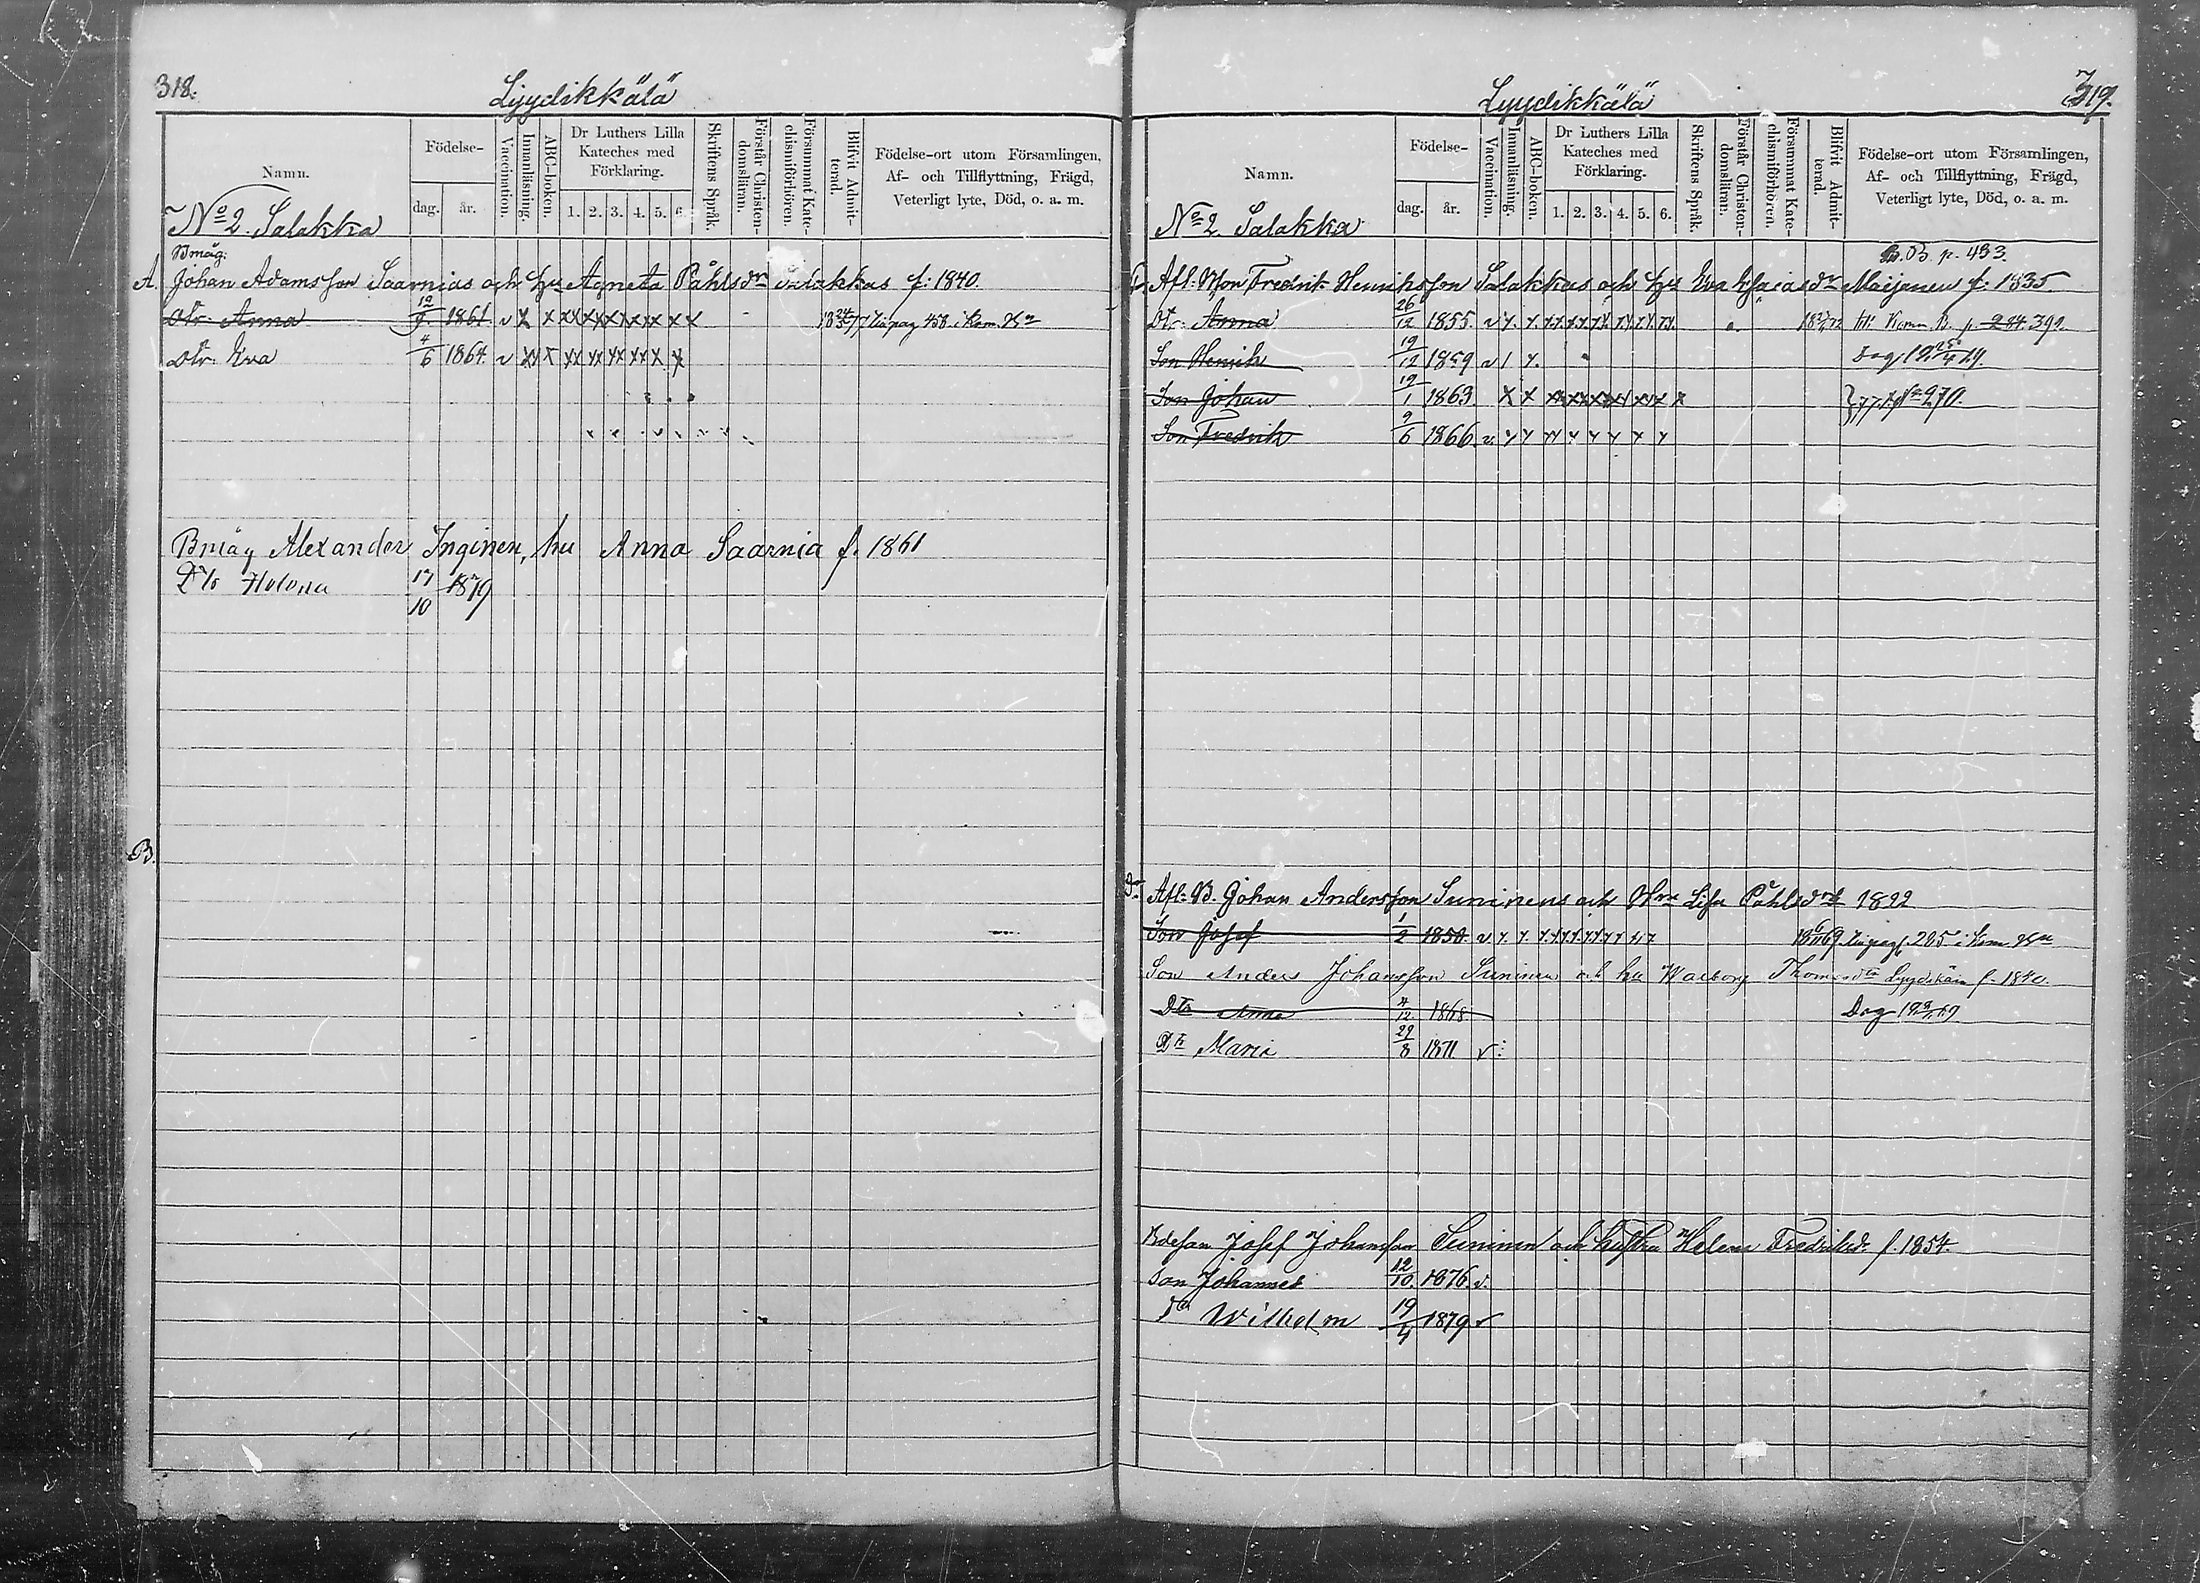 318.
Lyydikkälä
Namn.
Födelse-
dag.
år.
Vaccination.
Innanläsning.
ABC-boken.
Dr Luthers Lilla
Kateches med
Förklaring.
1. 2. 3. 4. 5. 6.
Skriftens Språk.
Förstår Christen-
domsläran.
Försummat Kate-
chismiförhören.
Blifvit Admit-
terad.
Födelse-ort utom Församlingen,
Af- och Tillflyttning, Frägd,
Veterligt lyte, Död, o. a. m.
No 2. Salakka
Bmåg.
A. Johan Adamsson Saarnias och hu Agneta Påhlsdr Salakkas f: 1840.
Dtr. Anna 12/9 1861. v x x xx xx xx xx xx x
Dtr. Eva 4/6 1864. v xx x xx xx xx xx x x
Bmåg Alexander Inginen, hu Anna Saarnia f. 1861
Helena 17/10 1879
B.
Lyydikkälä
319.
Namn.
Födelse-
dag.
år.
Vaccination.
Innanläsning.
ABC-boken.
Dr Luthers Lilla
Kateches med
Förklaring.
1. 2. 3. 4. 5. 6.
Skriftens Språk.
Förstår Christen-
domsläran.
Försummat Kate-
chismiförhören.
Blifvit Admit-
terad.
Födelse-ort utom Församlingen,
Af- och Tillflyttning, Frägd,
Veterligt lyte, Död, o. a. m.
No 2. Salakka
B. p. 433.
Afl. Fredrik Henriksson Salakkas och hu Eva Esaiasdr Maijanen f: 1835.
Dtr. Anna 26/12 1855. v
Son Henrik 19/12 1859 v
Son Johan 19/1 1863. x x
Son Fredrik 9/6 1866. v
270.
Afl. B. Johan Andersson Suninens och Lisa Påhlsdr 1822
Son Josef 1/2 1850 v
Son Anders Johansson Suninen och hu Walborg Thomasdtr f. 1840.
Dtr Anna 4/12 1868
Dtr Maria 29/8 1871 v
Josef Johansson Suninen och hustru Helena Fredriksd. f. 1854.
Son Johannes 12/10 1876 v.
Wilhelm 19/4 1879 v